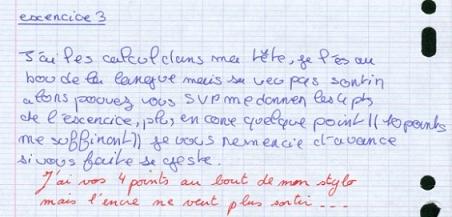 excercice 3
J'ai les calcul dans ma tête, je l'es au
bou de la langue mais sa veu pas sortir
alors pouvez vous SVP me donner les 4 pts
de l'escercice, plus encore quelque point (( 10 points
me suffiront)) je vous remercie d'avance
si vous faite se geste.
J'ai vos 4 points au bout de mon stylo
mais l'encre ne veut plus sortir....